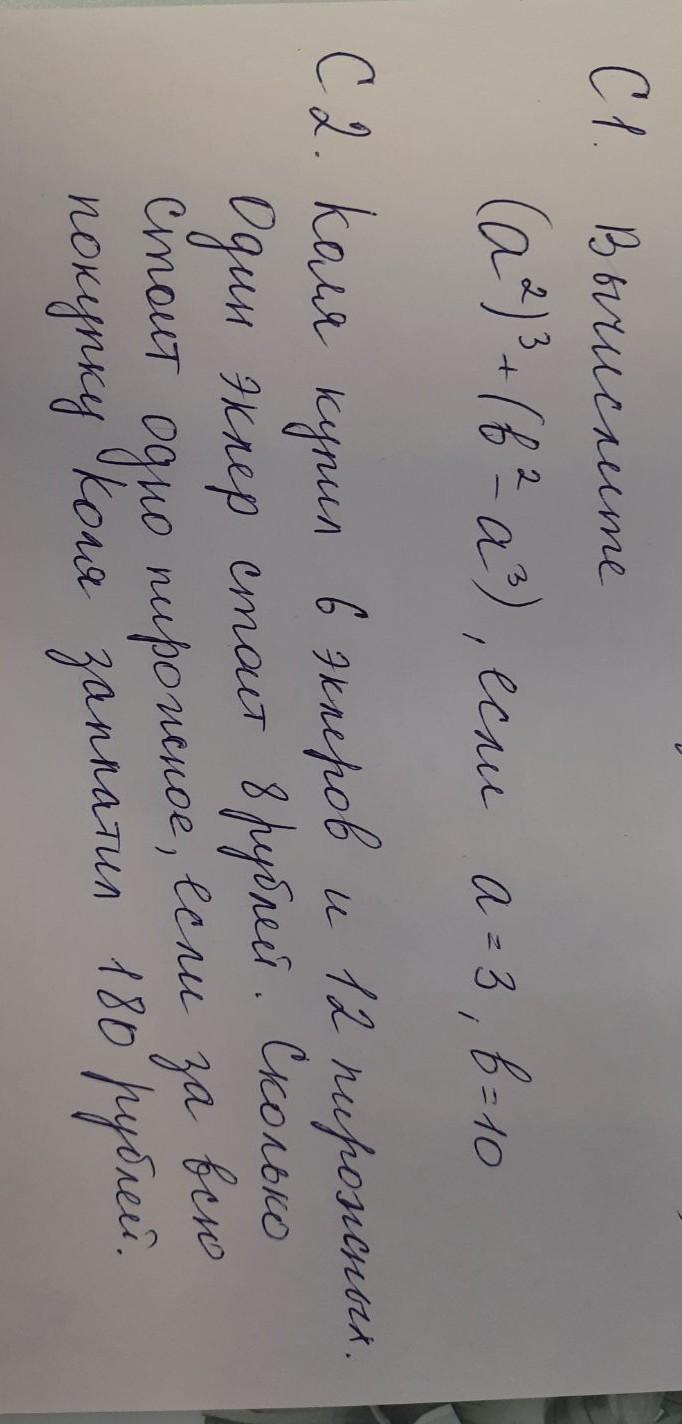 С1. Вычислите
(a²)³ + (b² - a³), если a = 3, b = 10
С2. Коля купил 6 эклеров и 12 пирожных.
Один эклер стоит 8 рублей. Сколько
стоит одно пирожное, если за всю
покупку Коля заплатил 180 рублей.